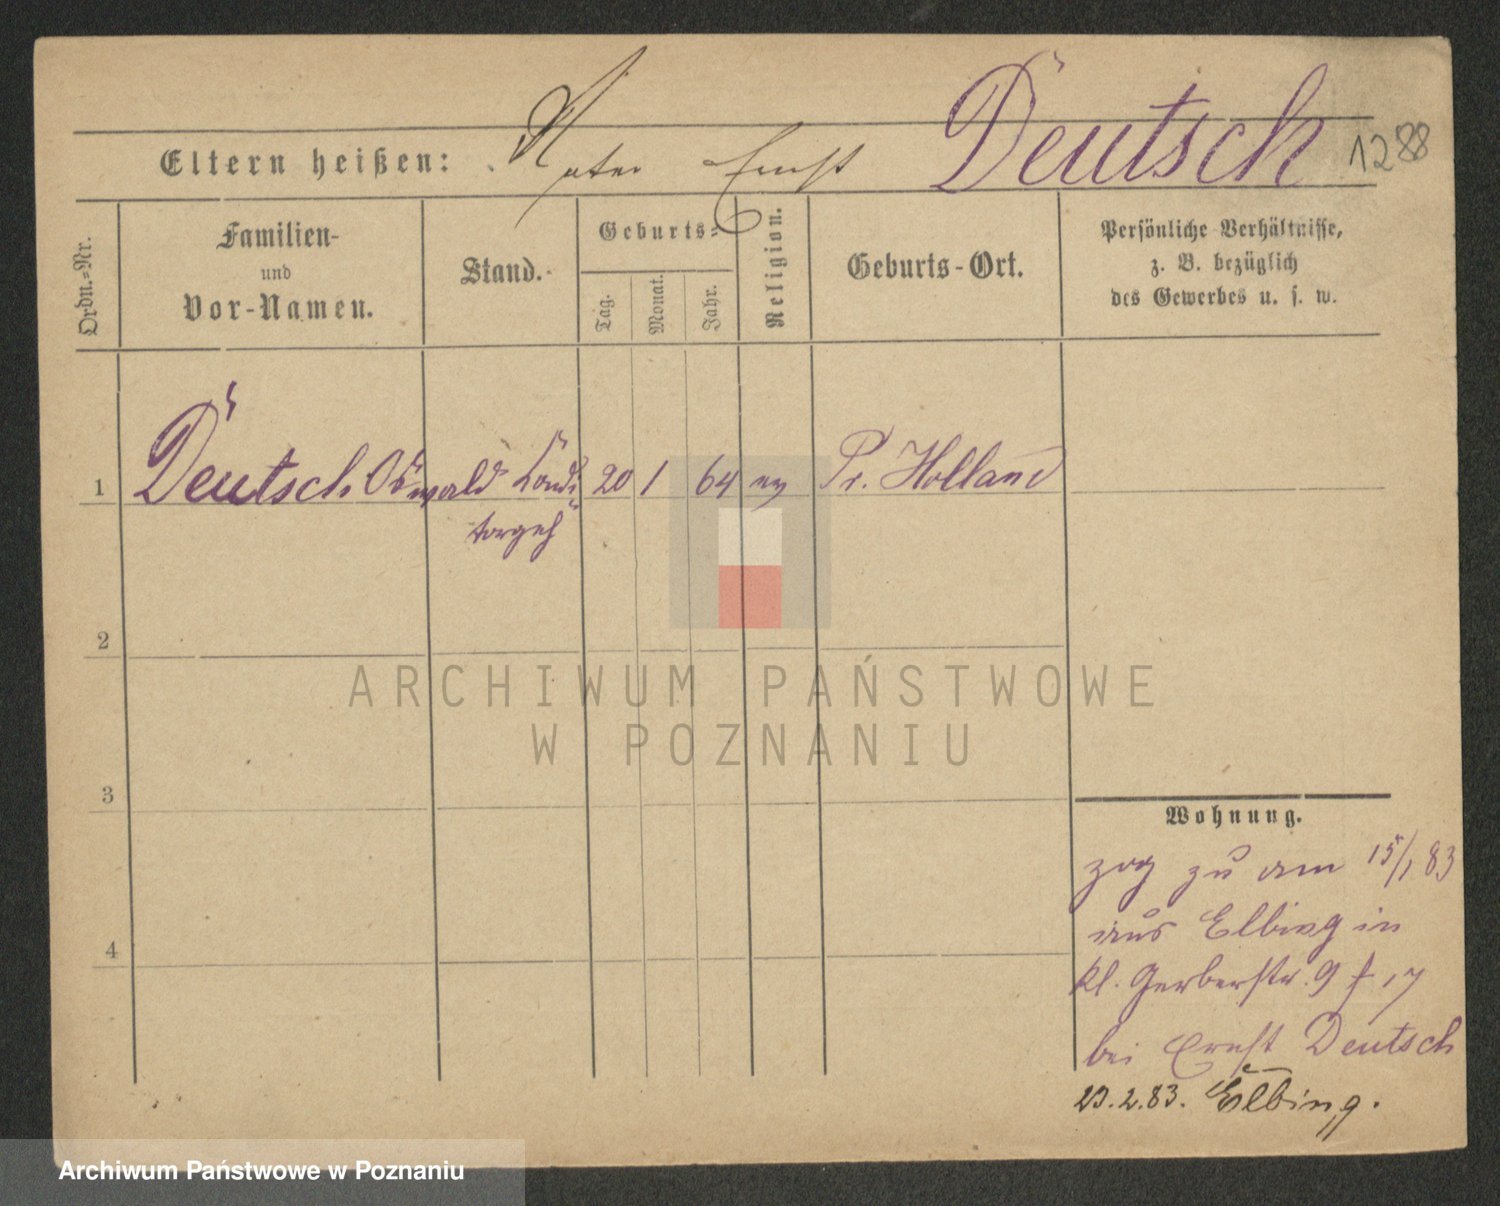 Deutsch
1288
Eltern heißen: Vater Ernst
Ordn.-Nr.
Familien-
und
Vor-Namen.
Stand.
Geburts-
Tag.
Monat.
Jahr.
Religion.
Geburts-Ort.
Persönliche Verhältnisse,
z. B. bezüglich
des Gewerbes u. s. w.
1 Deutsch Oswald Condi- 20 1 64 ev Pr. Holland
torgeh
2
3
4
ARCHIWUM PAŃSTWOWE
W POZNANIU
Wohnung.
zog zu am 15/1 83
aus Elbing in
kl. Gerberstr. 9 17
bei Ernst Deutsch
2.83. Elbing.
Archiwum Państwowe w Poznaniu